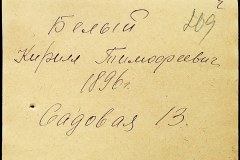 Белый 209
Кирилл Тимофеевич
1896г.
Садовая 13.